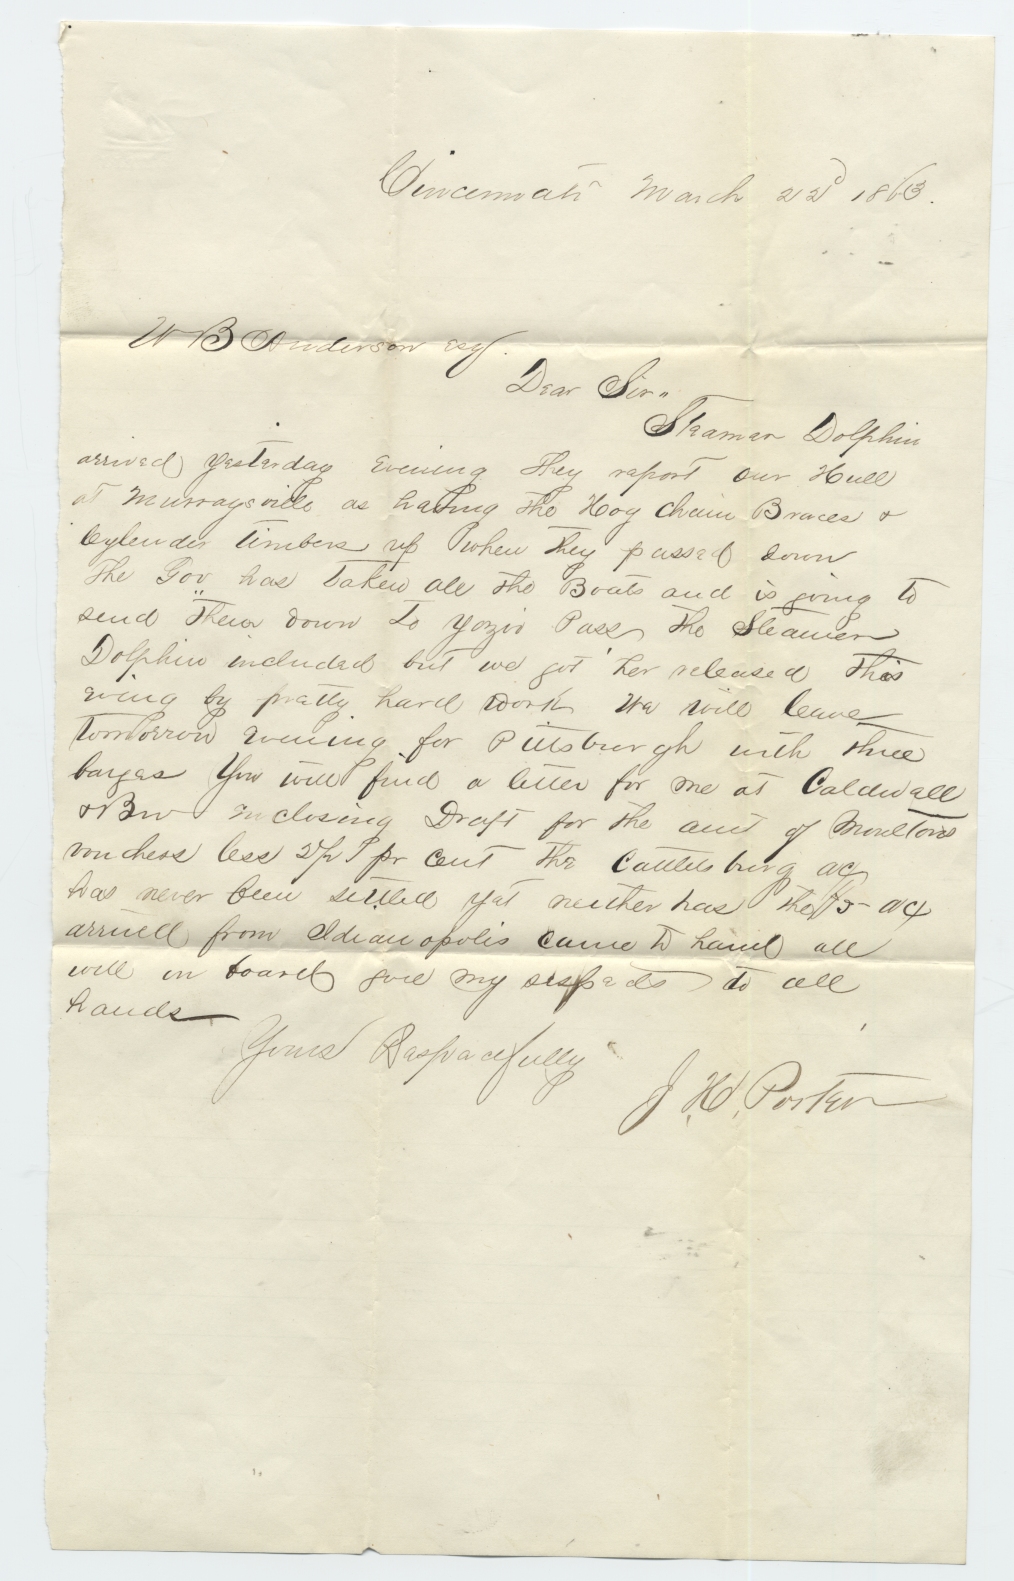 Cincinnati March 22d 1863.
W B Anderson esq.
Dear Sir"
Steamer Dolphin
arrived yesterday evening they report our Hull
at Murraysville as having the Hog Chain Braces &
Cylender timbers up when they passed down
The Gov has taken all the Boats and is going to
send them down to Yozio Pass, the Steamer
Dolphin included but we got her released this
eving by pretty hard work We will leave
tomorrow evening for Pittsburgh with three
barges You will find a letter for me at Caldwell
& Bro Enclosing Draft for the amt of Moultons
vouchers less 2½ pr cent the Cattletsburg ac
has never been settled yet neither has the ac
arrived from Idianopolis came to hand all
well on board give my respects to all
hands
Yours Respectfully
J. H. Porter